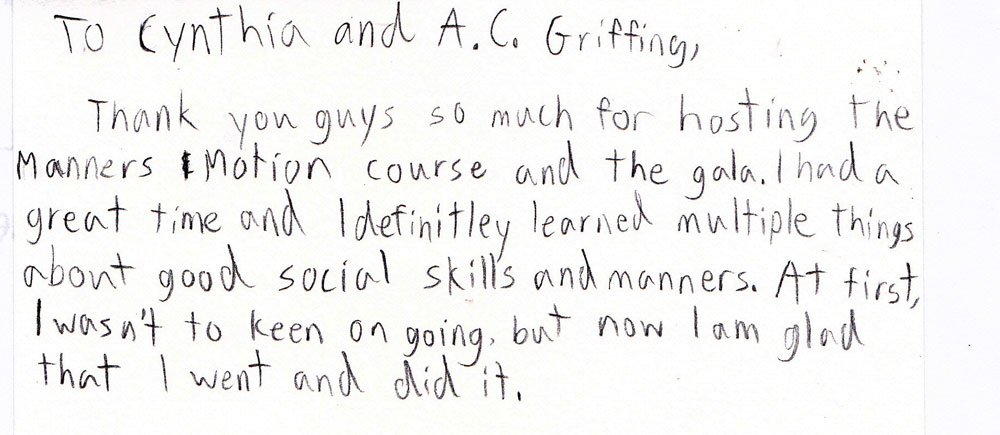 To Cynthia and A.C. Griffing,
Thank you guys so much for hosting the
Manners & Motion course and the gala. I had a
great time and I definitley learned multiple things
about good social skills and manners. At first,
I wasn't to keen on going, but now I am glad
that I went and did it.